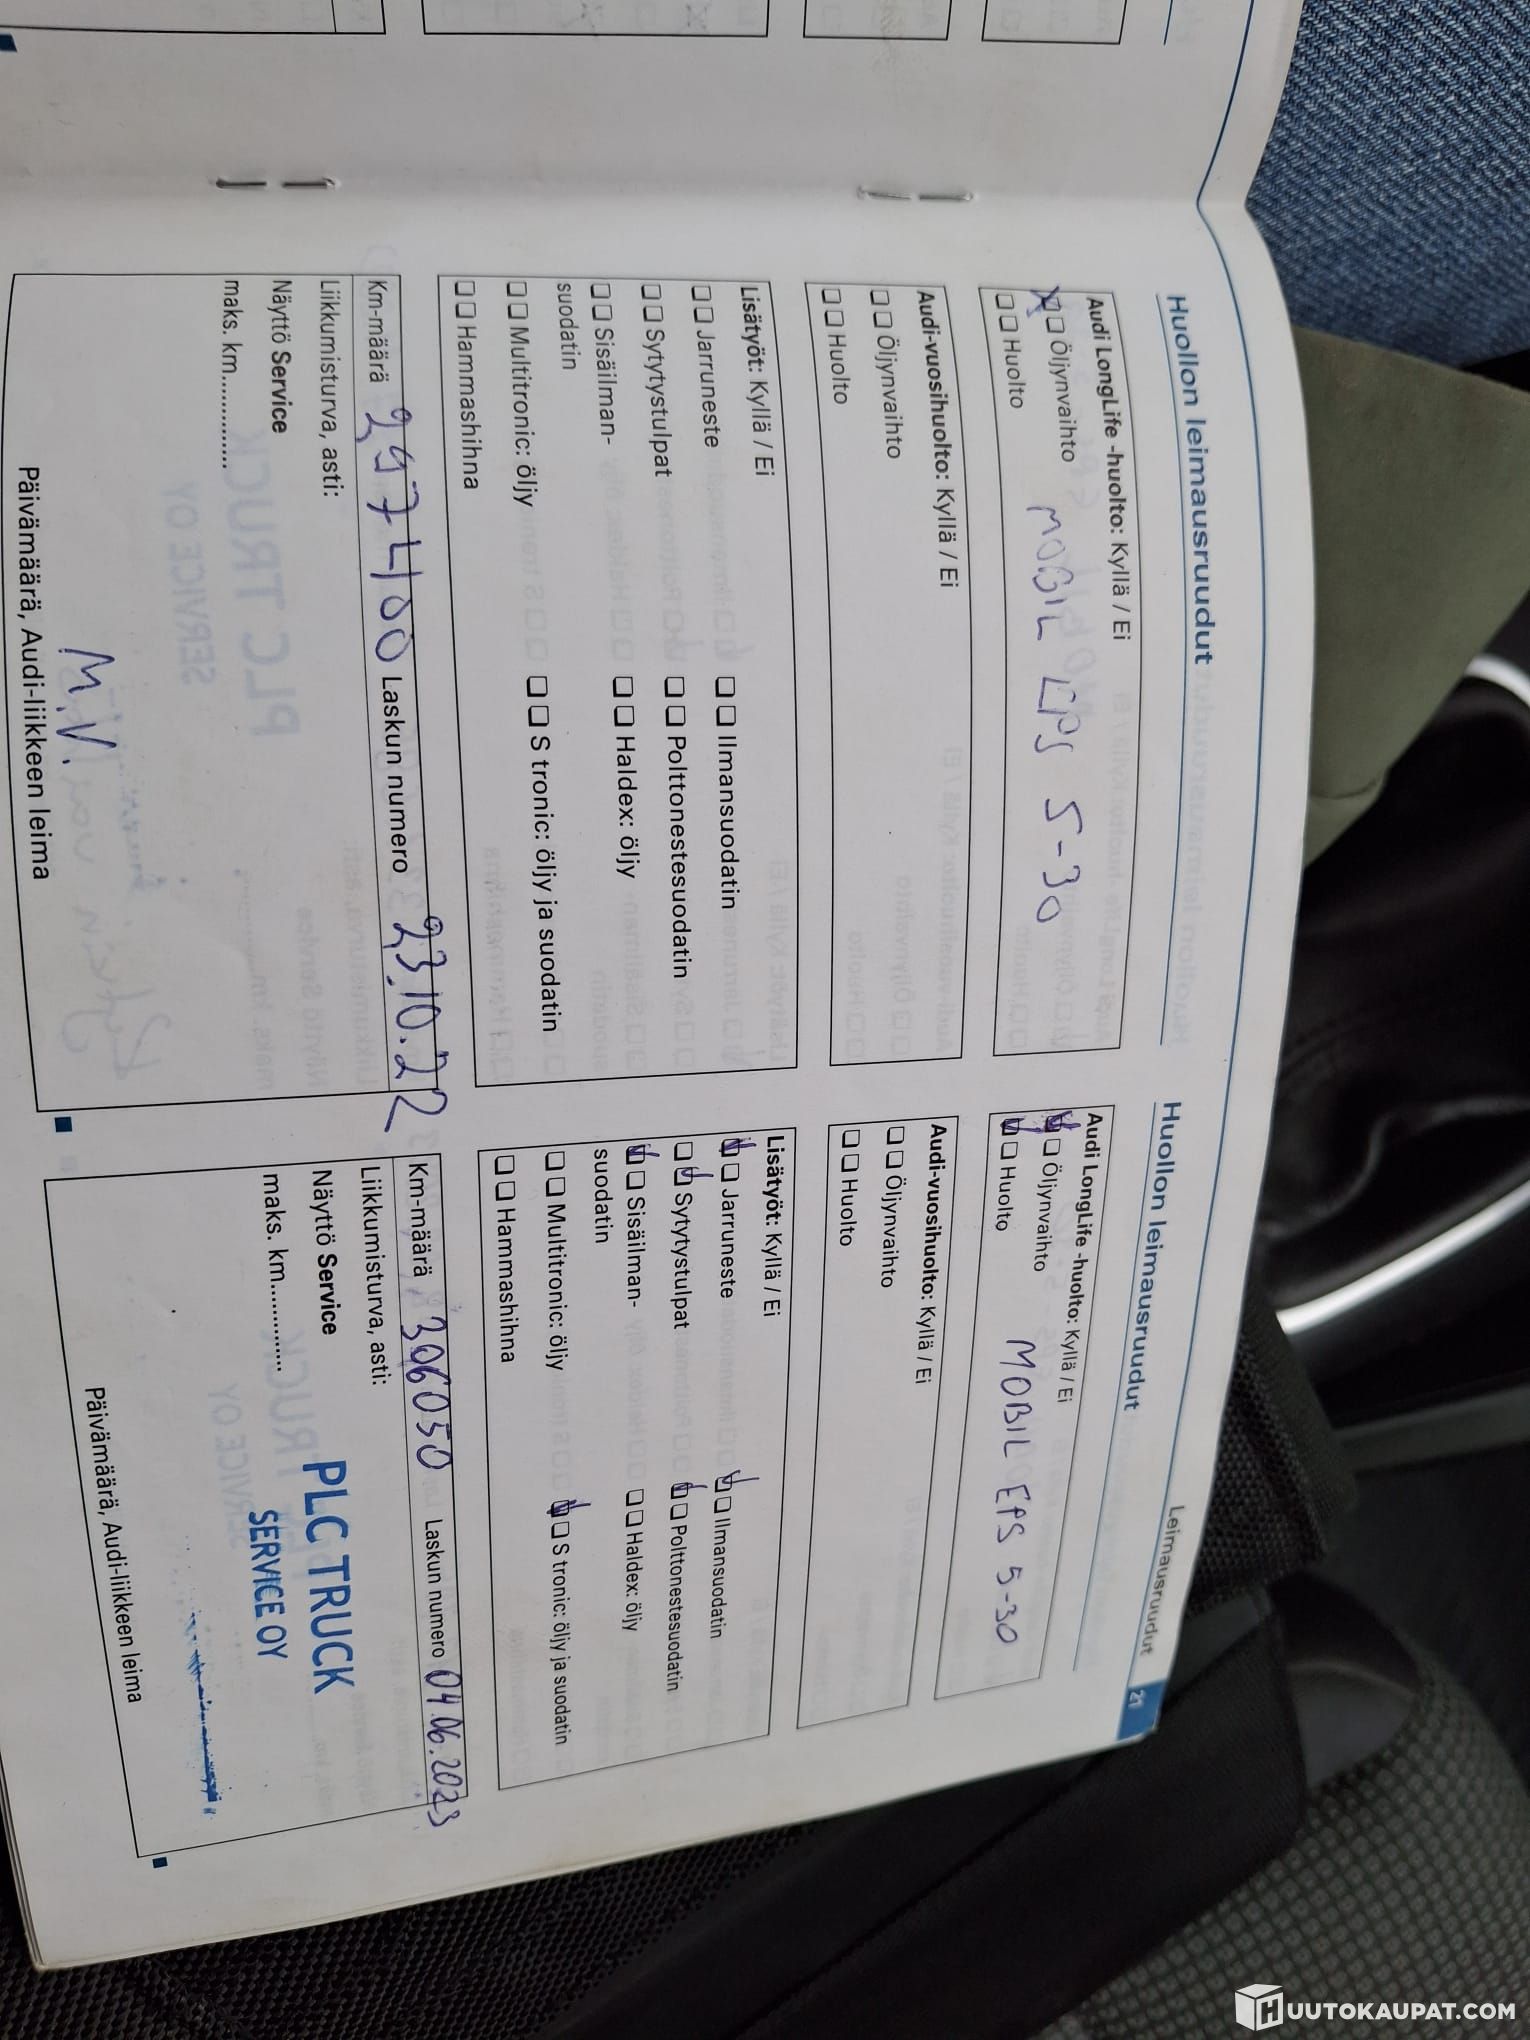 Leimausruudut 21
Huollon leimausruudut
Audi LongLife -huolto: Kyllä / Ei
Öljynvaihto
Huolto
MOBIL EPS 5-30
Audi-vuosihuolto: Kyllä / Ei
Öljynvaihto
Huolto
Lisätyöt: Kyllä / Ei
Jarruneste
Ilmansuodatin
Sytytystulpat
Polttonestesuodatin
Sisäilman-
suodatin
Haldex: öljy
Multitronic: öljy
S tronic: öljy ja suodatin
Hammashihna
Km-määrä 297400 Laskun numero 23.10.22
Liikkumisturva, asti:
Näyttö Service
maks. km.............
M.V.
Päivämäärä, Audi-liikkeen leima
Huollon leimausruudut
Audi LongLife -huolto: Kyllä / Ei
Öljynvaihto
Huolto
MOBIL EPS 5-30
Audi-vuosihuolto: Kyllä / Ei
Öljynvaihto
Huolto
Lisätyöt: Kyllä / Ei
Jarruneste
Ilmansuodatin
Sytytystulpat
Polttonestesuodatin
Sisäilman-
suodatin
Haldex: öljy
Multitronic: öljy
S tronic: öljy ja suodatin
Hammashihna
Km-määrä 306050 Laskun numero 04.06.2023
Liikkumisturva, asti:
Näyttö Service
maks. km.............
PLC TRUCK
SERVICE OY
Päivämäärä, Audi-liikkeen leima
HUUTOKAUPAT.COM